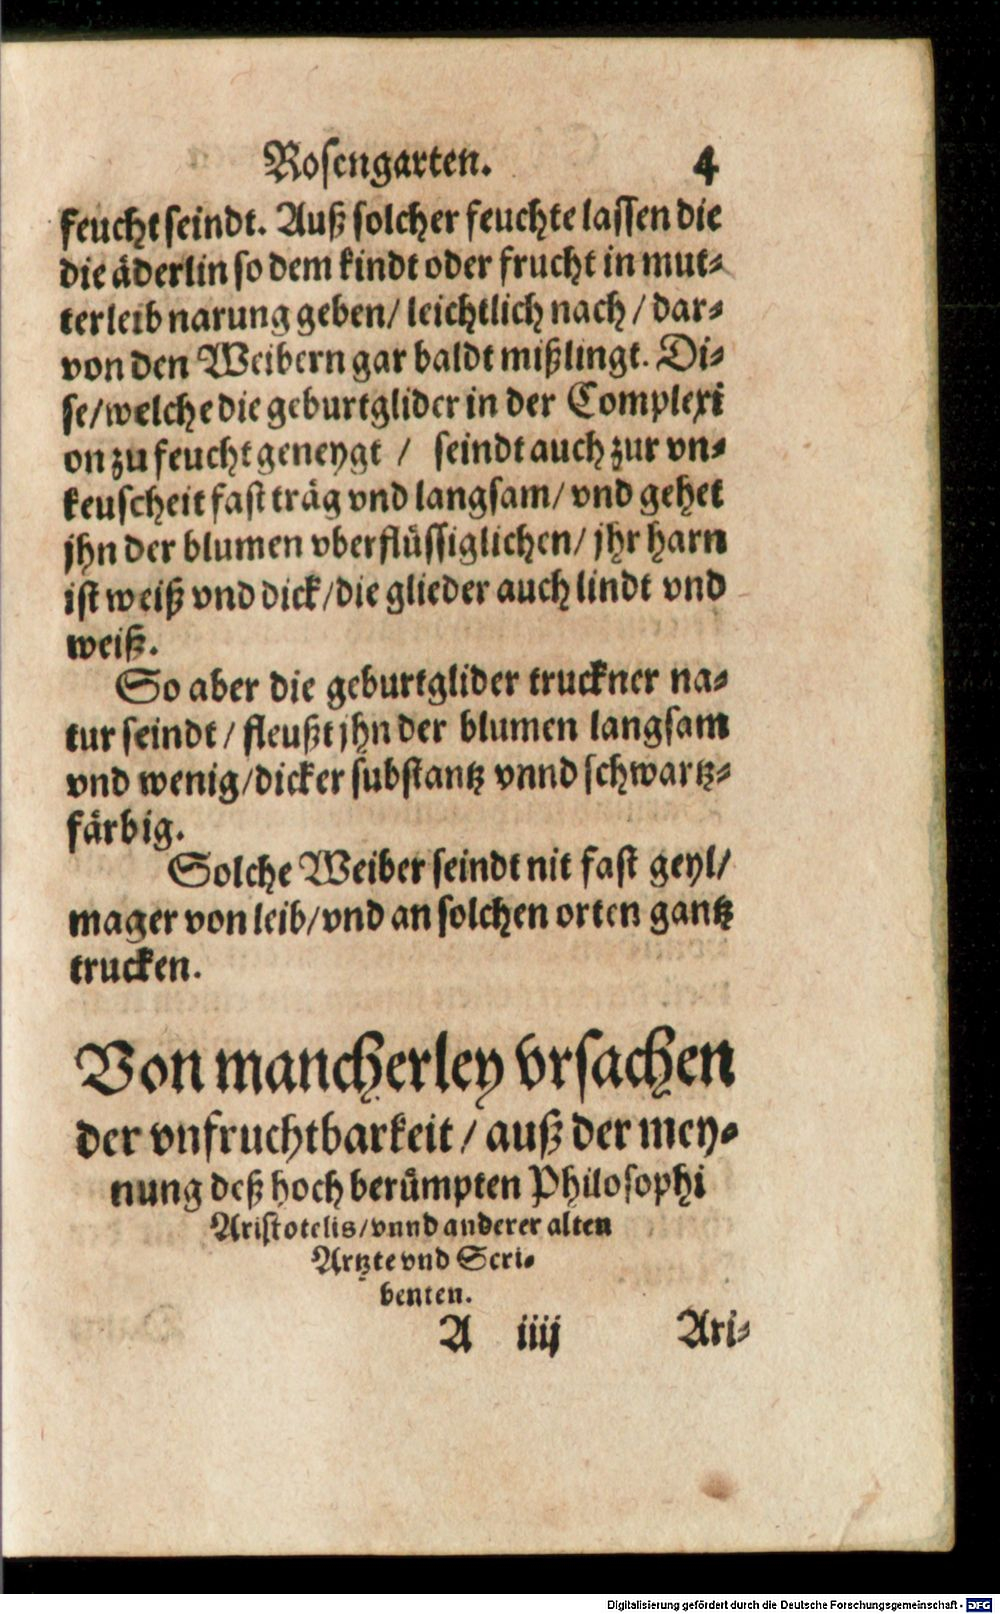 Rosengarten. 4
feucht seindt. Auß solcher feuchte lassen die
die äderlin so dem kindt oder frucht in mut-
terleib narung geben/ leichtlich nach / dar-
von den Weibern gar baldt mißlingt. Di-
se/welche die geburtglider in der Complexi
on zu feucht geneygt / seindt auch zur vn-
keuscheit fast träg vnd langsam/ vnd gehet
jhn der blumen vberflüssiglichen/ jhr harn
ist weiß vnd dick/die glieder auch lindt vnd
weiß.
So aber die geburtglider truckner na-
tur seindt / fleußt jhn der blumen langsam
vnd wenig/dicker substantz vnnd schwartz-
färbig.
Solche Weiber seindt nit fast geyl/
mager von leib/vnd an solchen orten gantz
trucken.
Von mancherley vrsachen
der vnfruchtbarkeit / auß der mey-
nung deß hoch berůmpten Philosophi
Aristotelis/vnnd anderer alten
Artzte vnd Scri-
benten.
A iiij Ari-
Digitalisierung gefördert durch die Deutsche Forschungsgemeinschaft - DFG